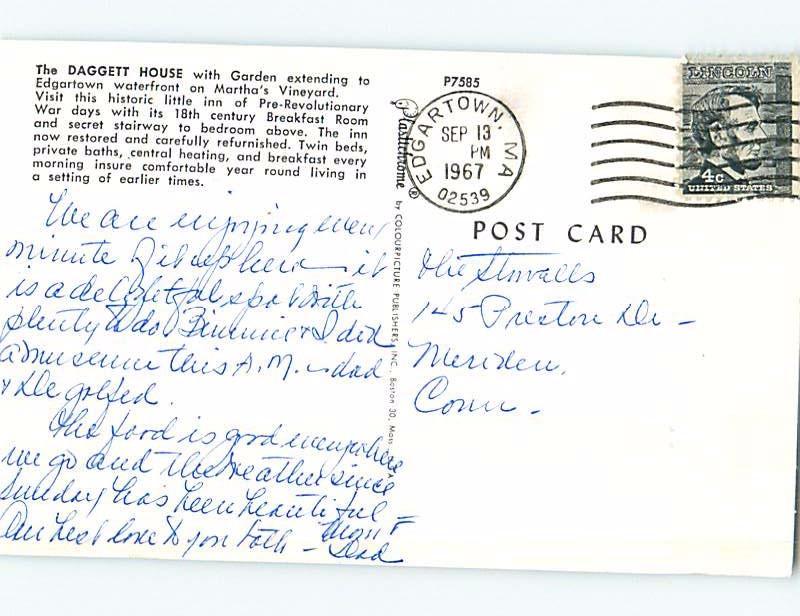 The DAGGETT HOUSE with Garden extending to
Edgartown waterfront on Martha's Vineyard.
Visit this historic little inn of Pre-Revolutionary
War days with its 18th century Breakfast Room
and secret stairway to bedroom above. The inn
now restored and carefully refurnished. Twin beds,
private baths, central heating, and breakfast every
morning insure comfortable year round living in
a setting of earlier times.
We are enjoying every
minute of it up here — it
is a delightful spot with
plenty to do. & I did
a museum this A.M. — dad
& golfed.
The food is good everywhere
we go and the weather since
Sunday has been beautiful —
Our best love to you both — Mom &
Dad
P7585
Plastichrome ® by COLOURPICTURE PUBLISHERS, INC., Boston 30, Mass
EDGARTOWN, MA
SEP 13
PM
1967
02539
LINCOLN
4c
UNITED STATES
POST CARD
The Stovalls
145 Preston Dr —
Meriden,
Conn —